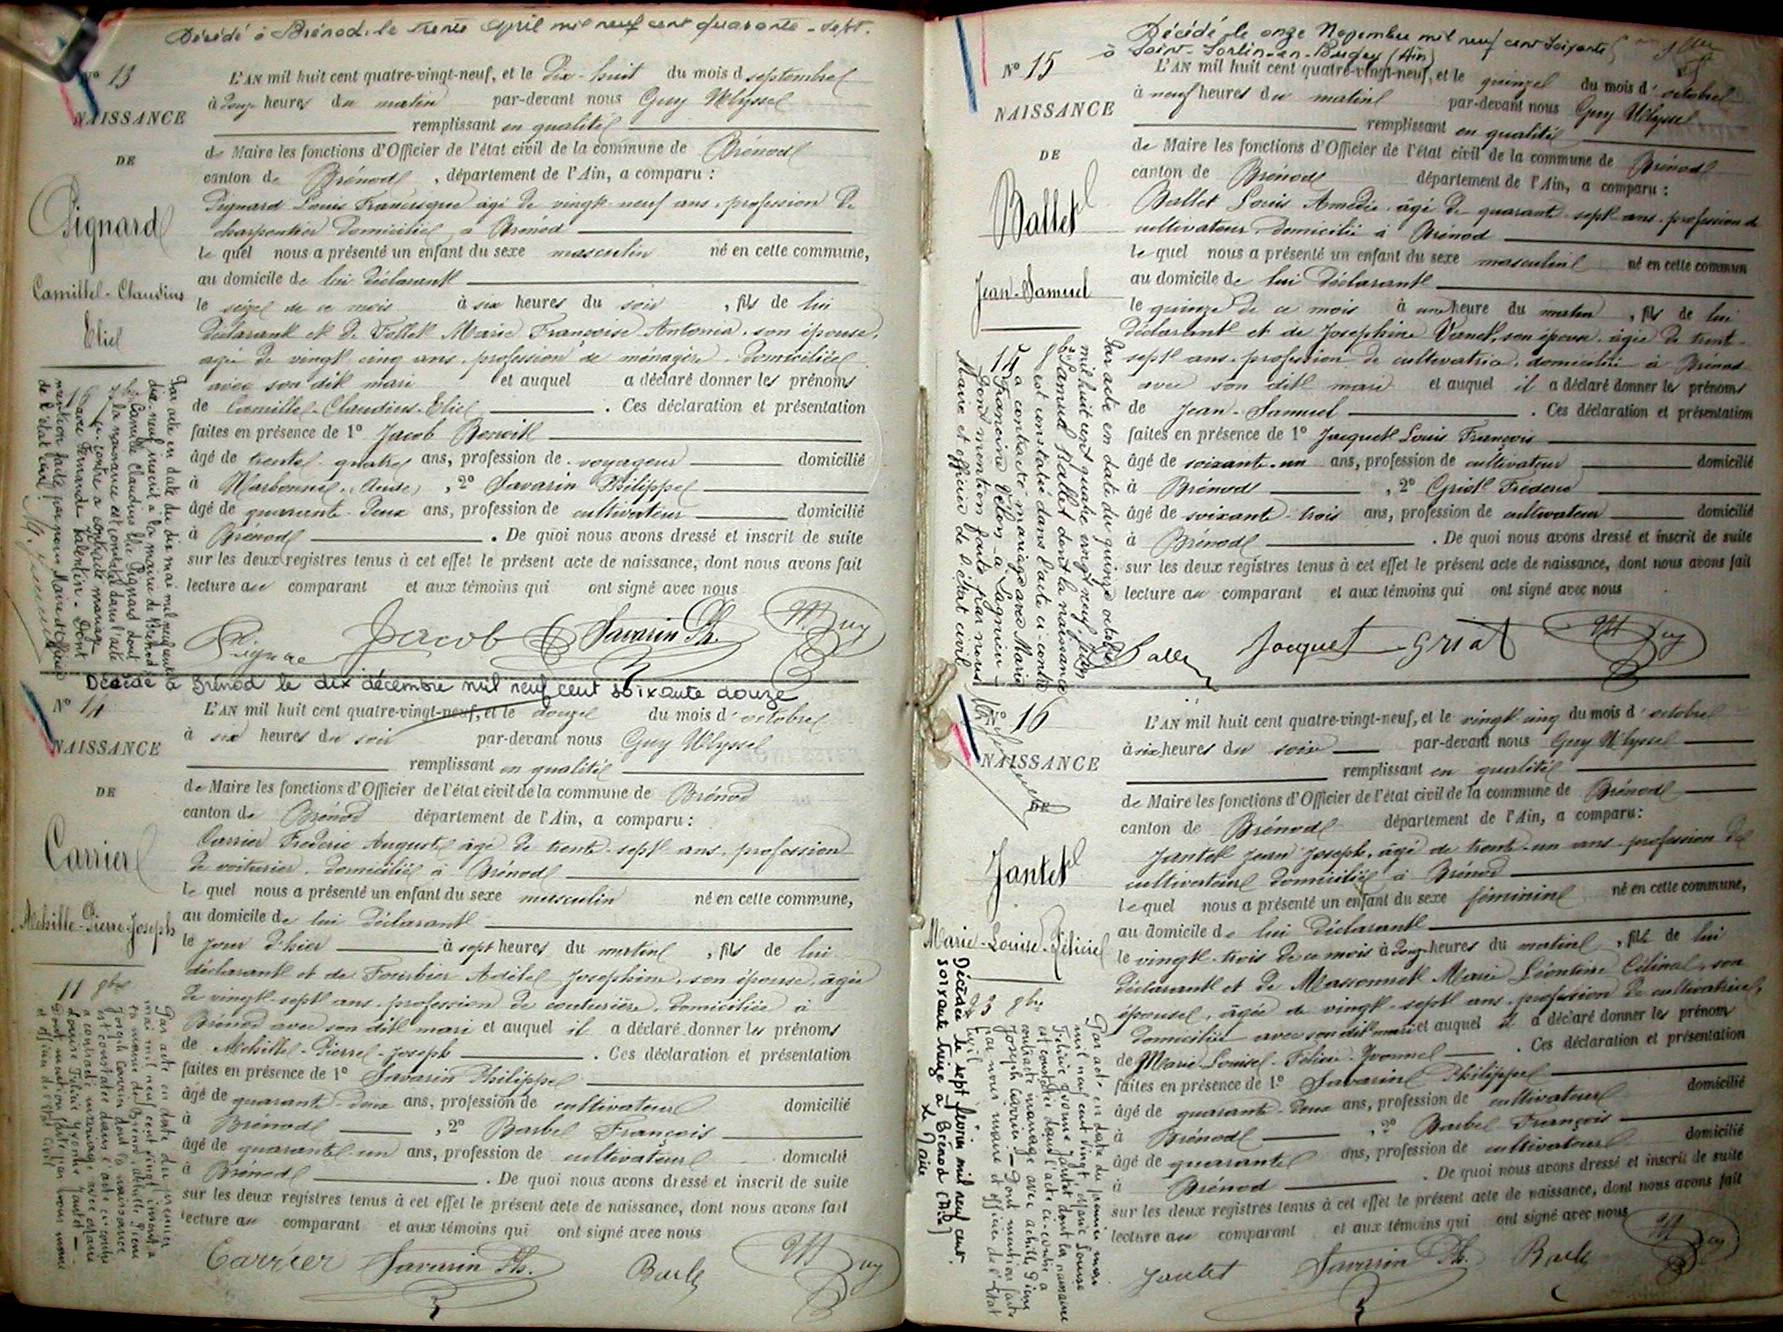 Décédé à Brénod, le trente Avril mil neuf cent quarante-sept.
N° 13
NAISSANCE
DE
Pignard
Camille-Claudius
Eliel
L'AN mil huit cent quatre-vingt-neuf, et le dix-huit du mois d septembre
à douze heures du matin par-devant nous Guy Ulysse
remplissant en qualité
de Maire les fonctions d'Officier de l'état civil de la commune de Brénod
canton de Brénod, département de l'Ain, a comparu :
Pignard Louis Francisque âgé de vingt-neuf ans, profession de
charpentier domicilié à Brénod
le quel nous a présenté un enfant du sexe masculin né en cette commune,
au domicile de lui déclarant
le seize de ce mois à six heures du soir, fils de lui
déclarant et de Follet Marie Françoise Antonia, son épouse,
âgée de vingt cinq ans, profession de ménagère, domiciliée
avec son dit mari et auquel a déclaré donner les prénoms
de Camille-Claudius-Eliel. Ces déclaration et présentation
faites en présence de 1° Jacob Benoit
âgé de trente-quatre ans, profession de voyageur domicilié
à Narbonne (Aude), 2° Savarin Philippe
âgé de quarante-deux ans, profession de cultivateur domicilié
à Brénod. De quoi nous avons dressé et inscrit de suite
sur les deux registres tenus à cet effet le présent acte de naissance, dont nous avons fait
lecture au comparant et aux témoins qui ont signé avec nous
Pignard Jacob Savarin Ph. Guy
Par acte en date du dix mai mil neuf cent
dix-neuf inscrit à la mairie de Brénod
Camille Claudius Eliel Pignard dont
la naissance est constatée dans l'acte
ci-contre a contracté mariage
avec Fernande Valentin. Dont
mention faite par nous Maire et officier
de l'état civil.
Décédé à Brénod le dix décembre mil neuf cent soixante douze
N° 14
NAISSANCE
DE
Carrier
Achille-Pierre-Joseph
L'AN mil huit cent quatre-vingt-neuf, et le douze du mois d'octobre
à six heures du soir par-devant nous Guy Ulysse
remplissant en qualité
de Maire les fonctions d'Officier de l'état civil de la commune de Brénod
canton de Brénod département de l'Ain, a comparu :
Carrier Frédéric Auguste âgé de trente-sept ans, profession
de voiturier, domicilié à Brénod
le quel nous a présenté un enfant du sexe masculin né en cette commune,
au domicile de lui déclarant
le jour d'hier à sept heures du matin, fils de lui
déclarant et de Fourbier Adèle Joséphine, son épouse, âgée
de vingt-sept ans, profession de couturière, domiciliée à
Brénod avec son dit mari et auquel il a déclaré donner les prénoms
de Achille-Pierre-Joseph. Ces déclaration et présentation
faites en présence de 1° Savarin Philippe
âgé de quarante-deux ans, profession de cultivateur domicilié
à Brénod, 2° Barbel François
âgé de quarante-un ans, profession de cultivateur domicilié
à Brénod. De quoi nous avons dressé et inscrit de suite
sur les deux registres tenus à cet effet le présent acte de naissance, dont nous avons fait
lecture au comparant et aux témoins qui ont signé avec nous
Carrier Savarin Ph. Guy
11 8bre
Par acte en date du premier
mai mil neuf cent vingt inscrit à
la mairie de Brénod, Achille Pierre
Joseph Carrier dont la naissance
est constatée dans l'acte ci-contre
a contracté mariage avec Marie
Louise Félicie Yvonne Jantet
dont mention faite par nous maire
et officier de l'état civil
Décédé le onze Novembre mil neuf cent soixante
à Saint-Sorlin-en-Bugey (Ain)
N° 15
NAISSANCE
DE
Ballet
Jean-Samuel
L'AN mil huit cent quatre-vingt-neuf, et le quinze du mois d'octobre
à neuf heures du matin par-devant nous Guy Ulysse
remplissant en qualité
de Maire les fonctions d'Officier de l'état civil de la commune de Brénod
canton de Brénod département de l'Ain, a comparu :
Ballet Louis Amédée, âgé de quarante-sept ans, profession de
cultivateur domicilié à Brénod
le quel nous a présenté un enfant du sexe masculin né en cette commun
au domicile de lui déclarant
le quinze de ce mois à une heure du matin, fils de lui
déclarant et de Joséphine Vanet, son épouse, âgée de trente-
sept ans, profession de cultivatrice, domiciliée à Brénod
avec son dit mari et auquel il a déclaré donner les prénoms
de Jean-Samuel. Ces déclaration et présentation
faites en présence de 1° Jacquet Louis François
âgé de soixante-un ans, profession de cultivateur domicilié
à Brénod, 2° Griot Frédéric
âgé de soixante-trois ans, profession de cultivateur domicilié
à Brénod. De quoi nous avons dressé et inscrit de suite
sur les deux registres tenus à cet effet le présent acte de naissance, dont nous avons fait
lecture au comparant et aux témoins qui ont signé avec nous
Ballet Jacquet Griot Guy
Par acte en date du quinze octobre
mil huit cent quatre vingt neuf, Jean
Samuel Ballet dont la naissance
est constatée dans l'acte ci-contre
a contracté mariage avec Marie
Francine Velon à Lagnieu
Dont mention faite par nous
Maire et officier de l'état civil
N° 16
NAISSANCE
DE
Jantet
Marie-Louise-Félicie
L'AN mil huit cent quatre-vingt-neuf, et le vingt cinq du mois d'octobre
à six heures du soir par-devant nous Guy Ulysse
remplissant en qualité
de Maire les fonctions d'Officier de l'état civil de la commune de Brénod
canton de Brénod département de l'Ain, a comparu :
Jantet Jean Joseph, âgé de trente-un ans, profession de
cultivateur domicilié à Brénod
lequel nous a présenté un enfant du sexe féminin né en cette commune,
au domicile de lui déclarant
le vingt-trois de ce mois à douze heures du matin, fille de lui
déclarant et de Massonnet Marie Léontine Célina, son
épouse, âgée de vingt-sept ans, profession de cultivatrice,
domiciliée avec son dit mari et auquel il a déclaré donner les prénom
de Marie-Louise-Félicie-Yvonne. Ces déclaration et présentation
faites en présence de 1° Savarin Philippe
âgé de quarante-deux ans, profession de cultivateur domicilié
à Brénod, 2° Barbel François
âgé de quarante ans, profession de cultivateur domicilié
à Brénod. De quoi nous avons dressé et inscrit de suite
sur les deux registres tenus à cet effet le présent acte de naissance, dont nous avons fait
lecture au comparant et aux témoins qui ont signé avec nous
Jantet Savarin Ph. Guy
23 8bre
Par acte en date du premier mai
mil neuf cent vingt, Marie Louise
Félicie Yvonne Jantet dont la naissance
est constatée dans l'acte ci-contre a
contracté mariage avec Achille Pierre
Joseph Carrier. Dont mention faite
par nous maire et officier de l'état
civil
Décédée le sept février mil neuf cent
soixante treize à Brénod (Ain)
Le Maire